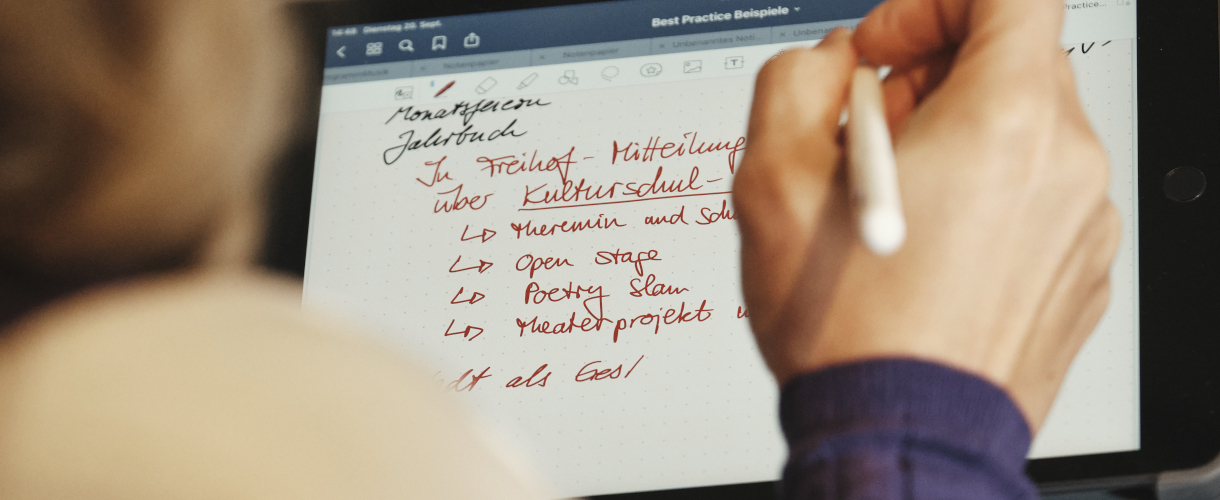 14:48 Dienstag 20. Sept.
Best Practice Beispiele
Notenpapier
Notenpapier
Unbenanntes Noti...
Practice...
Jahrbuch
In Freihof-Mitteilung
über Kulturschul-
Theremin und Sch
Open Stage
Poetry Slam
Theaterprojekt
als